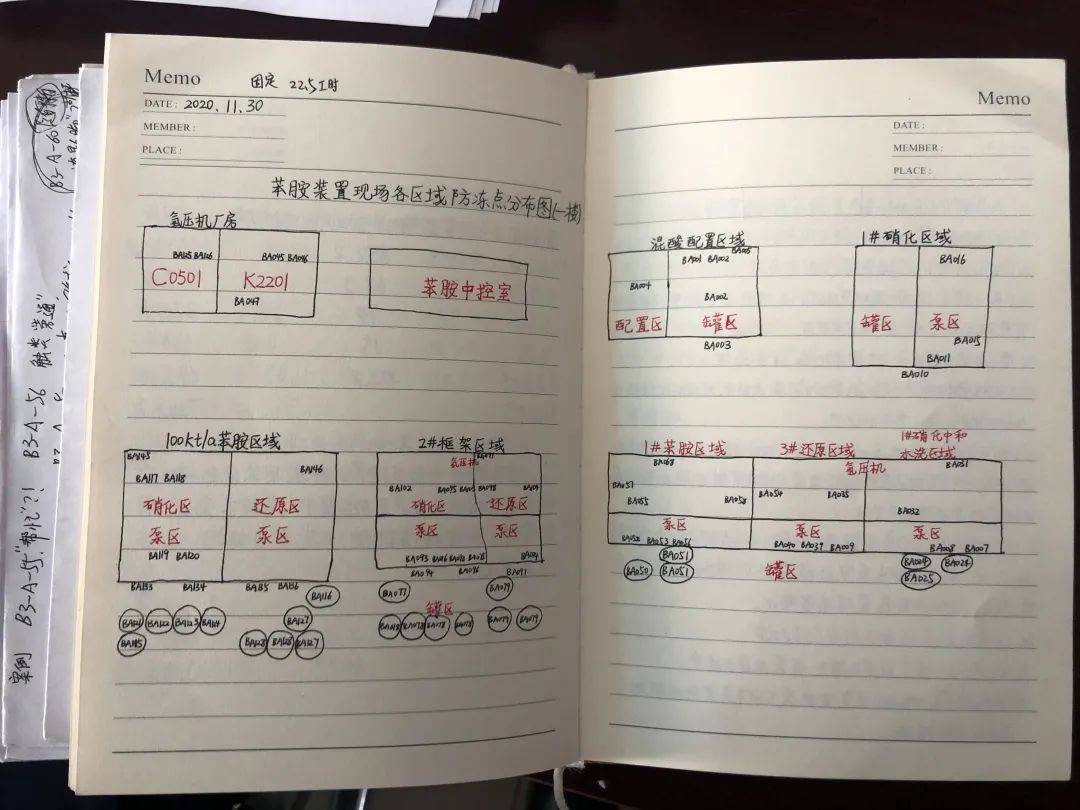 Memo
固定 22.5工时
DATE: 2020.11.30
MEMBER:
PLACE:
苯胺装置现场各区域防冻点分布图(一楼)
氢压机厂房
BA125 BA126
BA045 BA046
C0501
K2201
BA047
苯胺中控室
100kt/a苯胺区域
BA145
BA117 BA118
BA146
硝化区
还原区
泵区
泵区
BA119 BA120
BA133
BA134
BA135
BA136
BA116
BA122
BA123
BA127
BA127
2#框架区域
氢压机
BA102
硝化区
还原区
泵区
泵区
BA093
BA094
BA091
BA077
BA079
罐区
BA078
BA078
BA079
BA079
Memo
DATE:
MEMBER:
PLACE:
混酸配置区域
BA001 BA002
BA004
BA002
配置区
罐区
BA003
1#硝化区域
BA016
罐区
泵区
BA015
BA011
BA010
1#苯胺区域
BA057
BA055
BA058
泵区
BA052 BA053 BA056
BA051
BA050
BA051
3#还原区域
氢压机
BA054
BA035
泵区
BA040 BA039 BA009
罐区
1#硝化中和
水洗区域
BA031
BA032
泵区
BA008
BA007
BA024
BA024
BA025
案例
B3-A-54."帮忙"?!
B3-A-56
B3-A-60